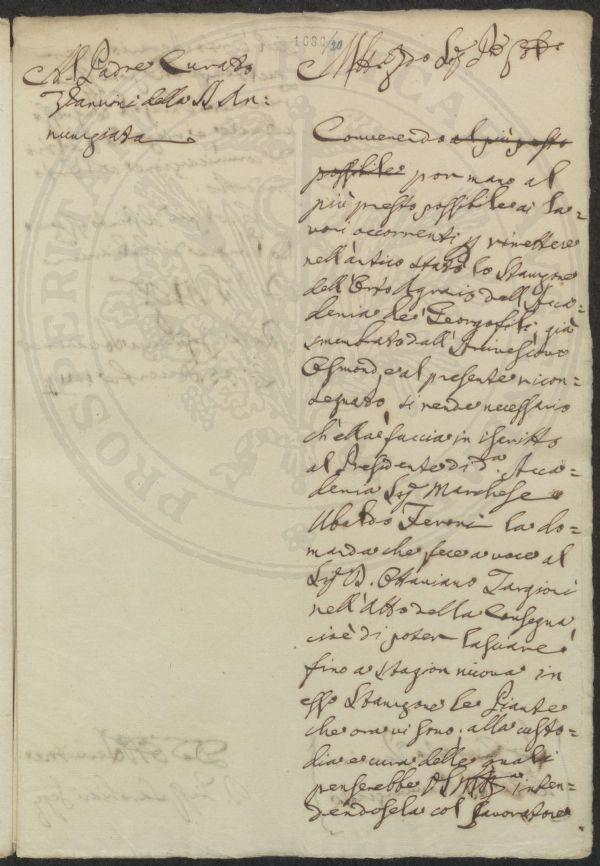 1688/20
Al Padre Curato
Vannini della SS. An=
nunziata
Convenendo al più presto
possibile por mano al
più presto possibile ai la=
vori occorrenti p rimettere
nell'antico stato lo Stanzone
dell'Orto Agrario dell'Acca=
demia de' Georgofili, già
smembrato dall' Arcivescovo
Osmond, e al presente ricon=
segnato, si rende necessario
ch'ella faccia in iscritto
al Presidente di d.ª Acca=
demia Sig. Marchese
Ubaldo Feroni la do=
manda che fece a voce al
Sig. D. Ottaviano Targioni
nell'Atto della Consegna
cioè di poter lasciare
fino a stagion nuova in
esso Stanzone le Piante
che ora vi sono, alla custo=
dia e cura delle quali
penserebbe inten=
dendosela col Lavoratore
PROSPERITA PUBLICA